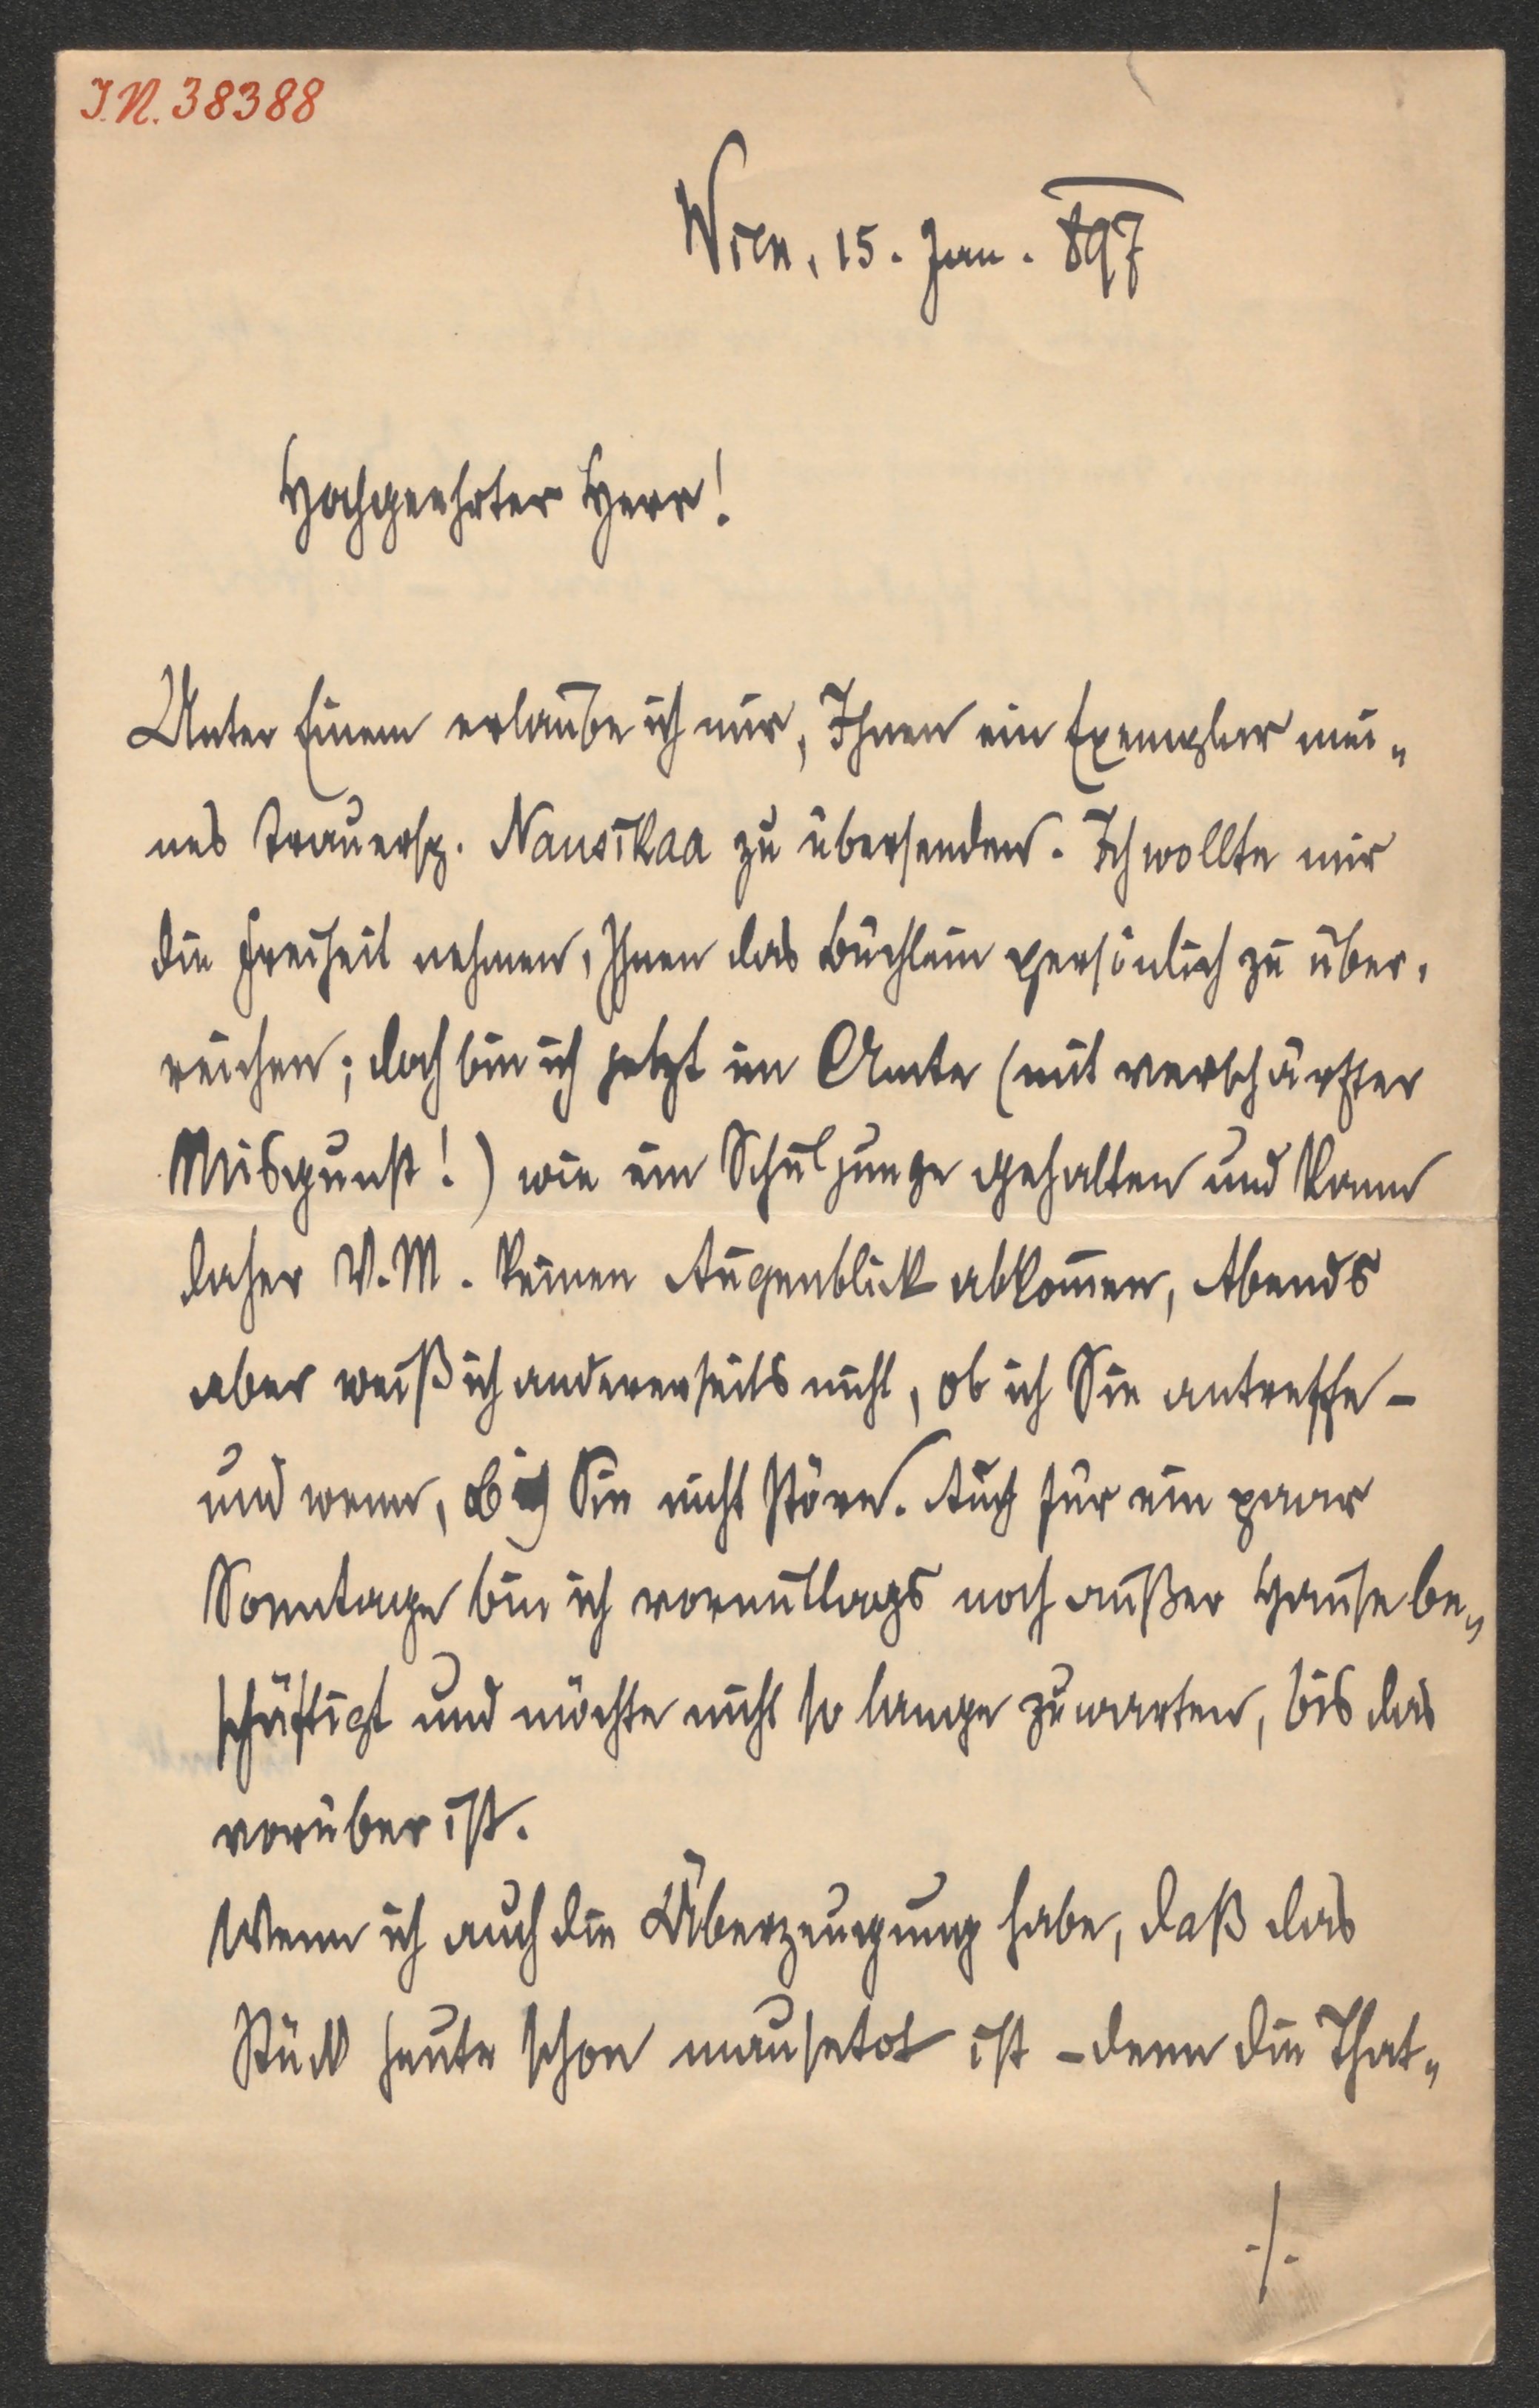 I.N. 38388
Wien, 15. Jan. 897
Hochgeehrter Herr!
Unter Einem erlaube ich mir, Ihnen ein Exemplar mei-
nes Trauersp. Nausikaa zu übersenden. Ich wollte mir
die Freiheit nehmen, Ihnen das Büchlein persönlich zu über-
reichen; doch bin ich jetzt im Amte (mit verschärfter
Misgunst!) wie ein Schuljunge gehalten und kann
daher V. M. keinen Augenblick abkom̅en, Abends
aber weiß ich andererseits nicht, ob ich Sie antreffe –
und wenn, ob ich Sie nicht störe. Auch für ein paar
Sonntage bin ich vormittags noch außer Hause be-
schäftigt und möchte nicht so lange zuwarten, bis das
vorüber ist.
Wenn ich auch die Überzeugung habe, daß das
Stück heute schon mausetot ist – denn die That-
./.